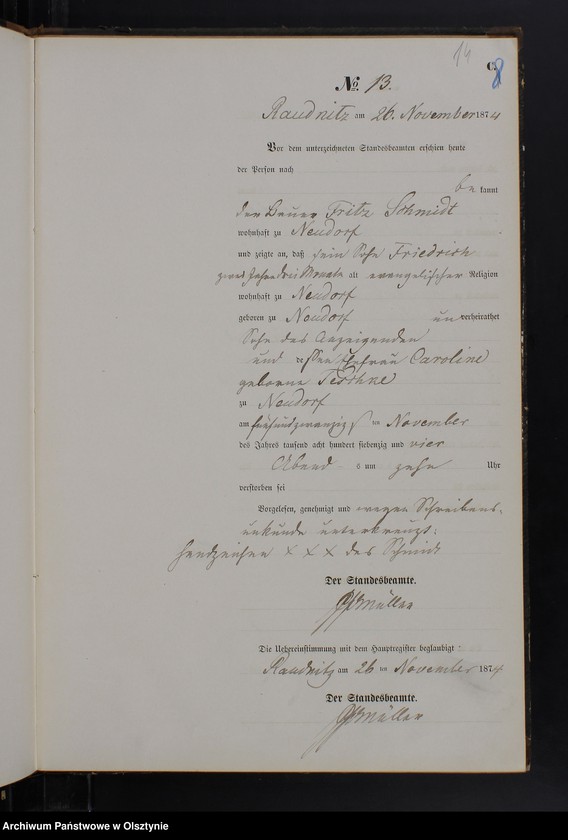 14
C.
8
№. 13.
Raudnitz am 26. November 1874
Vor dem unterzeichneten Standesbeamten erschien heute
der Person nach
be kannt
der Bauer Fritz Schmidt
wohnhaft zu Neudorf
und zeigte an, daß sein Sohn Friedrich
zwei Jahr drei Monate alt evangelischer Religion
wohnhaft zu Neudorf
geboren zu Neudorf un verheirathet
Sohn des Anzeigenden
und dessen Ehefrau Caroline
geborne Teschke
zu Neudorf
am fünfundzwanzigsten November
des Jahres tausend acht hundert siebenzig und vier
Abend s um zehn Uhr
verstorben sei
Vorgelesen, genehmigt und wegen Schreibens-
unkunde unterkreuzt:
Handzeichen × × × des Schmidt
Der Standesbeamte.
Müller
Die Uebereinstimmung mit dem Hauptregister beglaubigt
Raudnitz am 26 ten November 1874
Der Standesbeamte.
Müller
8
Archiwum Państwowe w Olsztynie